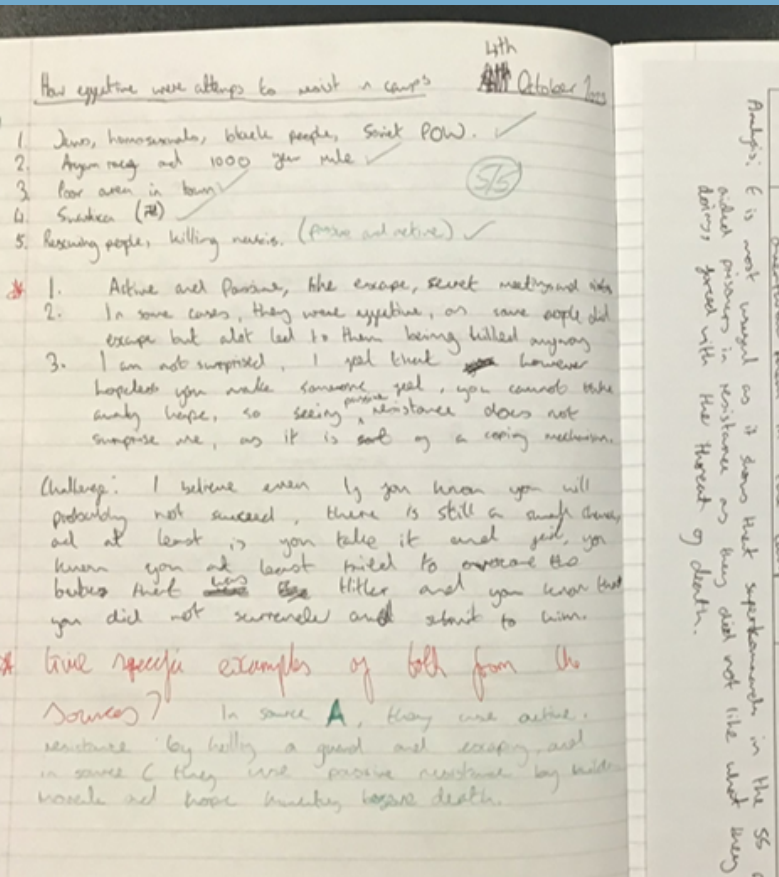 4th
How effective were attemps to resist in camps October
1. Jews, homosexuals, black people, Soviet POW.
2. Aryan race and 1000 year rule
3. Poor area in town
5/5
4. Swastica (卍)
5. Rescuing people, killing nazis. (passive and active)
* 1. Active and Passive, like escape, secret meetings and
2. In some cases, they were effective, as some people did
escape but alot led to them being killed anyway
3. I am not surprised, I feel that however
hopeless you make someone feel, you cannot take
away hope, so seeing passive resistance does not
surprise me, as it is sort of a coping mechanism.
Challenge: I believe even if you know you will
probably not succeed, there is still a small chance,
and at least if you take it and fail, you
know you at least tried to overcome the
that was Hitler and you know that
you did not surrender and submit to him.
* Give specific examples of both from the
sources? In source A, they use active
resistance by killing a guard and escaping, and
in source C they use passive resistance by
morale and hope before death.
Analysis: E is most useful as it shows that in the SS
aided prisoners in resistance as they did not like what they
doing, faced with the threat of death.